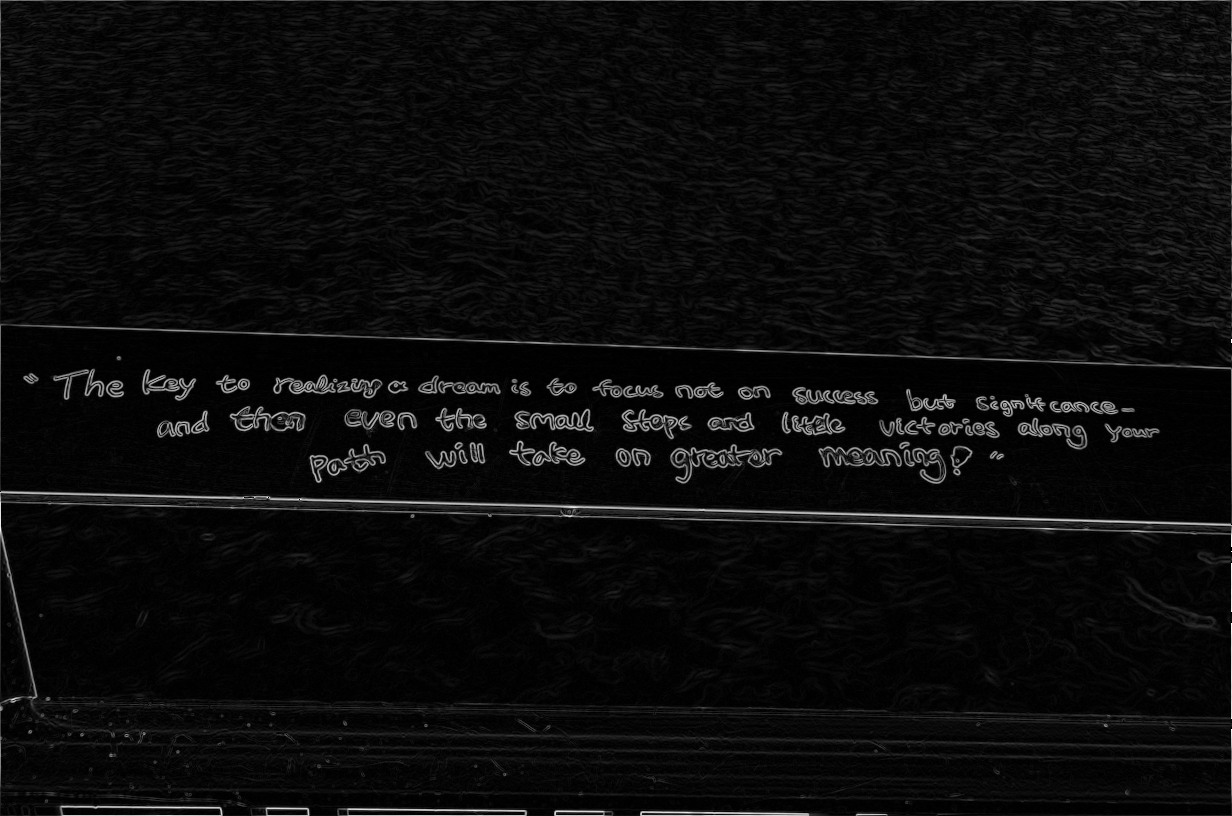 " The key to realizing a dream is to focus not on success but significance-
and then even the small steps and little victories along your
path will take on greater meaning! "